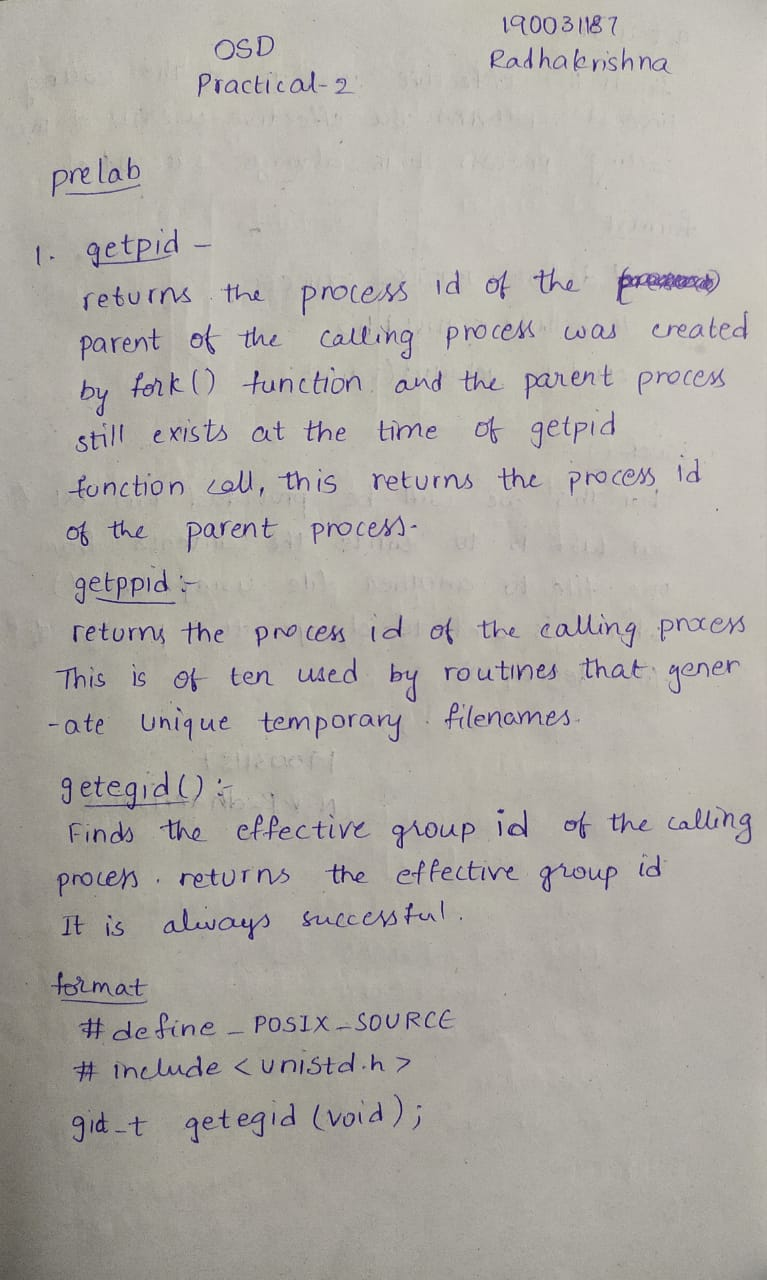 190031187
OSD
Radhakrishna
Practical-2
prelab
1. getpid -
returns the process id of the
parent of the calling process was created
by fork() function and the parent process
still exists at the time of getpid
function call, this returns the process id
of the parent process.
getppid :-
returns the process id of the calling process
This is of ten used by routines that gener
-ate unique temporary filenames.
getegid() :-
Finds the effective group id of the calling
process. returns the effective group id
It is always successful.
format
# define _ POSIX _ SOURCE
# include < unistd.h >
gid_t getegid (void);